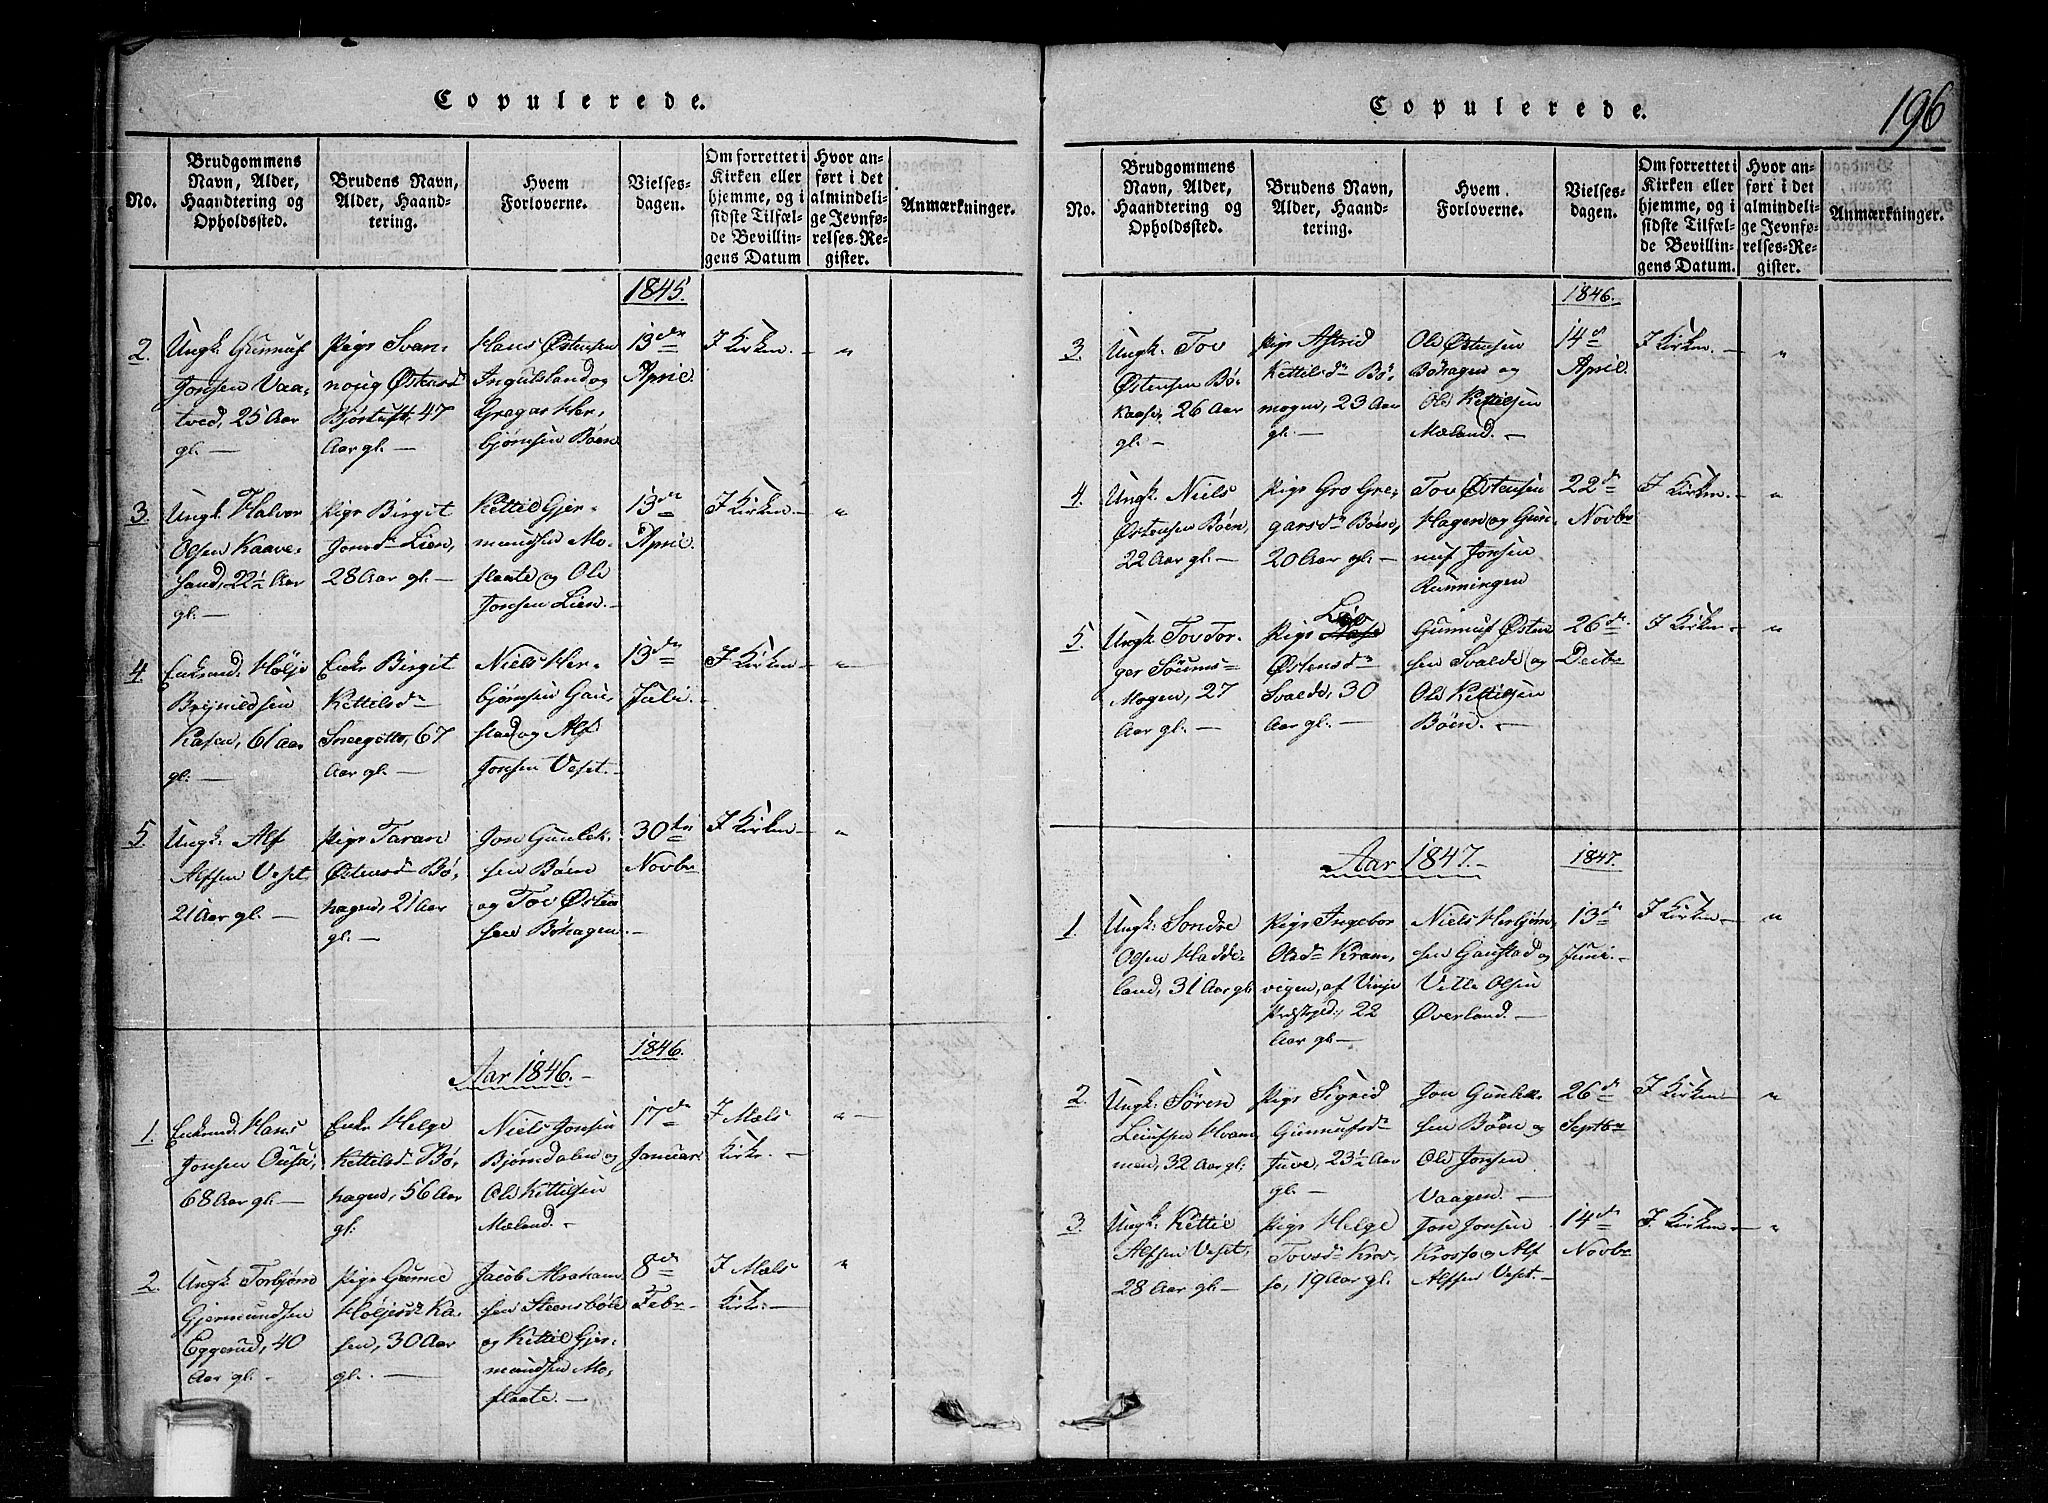 Copulerede.
No.
Brudgommens
Navn, Alder,
Haandtering og
Opholdssted.
Brudens Navn,
Alder, Haand-
tering.
Hvem
Forloverne.
Vielses-
dagen.
Om forrettet i
Kirken eller
hjemme, og i
sidste Tilfæl-
de Bevillin-
gens Datum
Hvor an-
ført i det
almindeli-
ge Jevnfø-
relses-Re-
gister.
Anmærkninger.
1845.
2.
Ungk: Gunnuf
Jonsen Vaa-
tved, 25 Aar
gl. —
Pige Svan-
noug Østensd
Bjørtuft, 47
Aar gl. —
Hans Østensen
Ingulsland og
Gregar Her-
bjørnsen Bøen
13de
April.
I Kirken. —
"
3.
Ungk. Halvor
Olsen Kaave-
land, 22½ Aar
gl. —
Pige Birgit
Jonsdr Lien,
28 Aar gl. —
Kettil Gjer-
mundsen Mo-
flaate og Ole
Jonsen Lien. —
13de
April.
I Kirken. —
"
4.
Enkemd. Høljе
Brynildsen
Kasen, 61 Aar
gl. —
Enke Birgit
Kettelsdr
67
Aar gl. —
Niels Her-
bjørnsen Gau-
stad og Alf
Jonsen Veset. —
13de
Juli. —
I Kirken —
"
5.
Ungk. Alf
Alfsen Veset,
21 Aar gl. —
Pige Taran
Østensdr Bø-
hagen, 21 Aar
gl. —
Jon Gunleik-
sen Bøen
og Tov Østen-
sen Bøhagen. —
30te
Novbr
I Kirken —
"
Aar 1846. —
1846.
1.
Enkemd. Hans
Jonsen
68 Aar gl. —
Enke Helge
Kettelsdr Bø-
hagen, 56 Aar
gl:
Niels Jonsen
Bjørndalen og
Ole Kettilsen
Mæland. —
17de
Januar.
I Mæls
Kirke. —
" —
2.
Ungk. Torbjørn
Gjermundsen
Eggerud, 40
Aar gl. -
Pige Gunne
Høljesdr Ka-
sen, 30 Aar
gl. —
Jacob Abraham-
sen Steensbøle
og Kettil Gjer-
mundsen Mo-
flaate. —
8de
Febr —
I Mæls
Kirke: —
"
Copulerede.
196
No.
Brudgommens
Navn, Alder,
Haandtering og
Opholdssted.
Brudens Navn,
Alder, Haand-
tering.
Hvem
Forloverne.
Vielses-
dagen.
Om forrettet i
Kirken eller
hjemme, og i
sidste Tilfæl-
de Bevillin-
gens Datum.
Hvor an-
ført i det
almindeli-
ge Jevnfø-
relses-Re-
gister.
Anmærkninger.
1846.
3.
Ungk. Tov
Østensen Bø-
kaase, 26 Aar
gl. —
Pige Astrid
Kettelsdr Bø-
mogen, 23 Aar
gl. —
Ole Østensen
Bøhagen og
Ole Kettilsen
Mæland. —
14de
April.
I Kirken. —
"
4.
Ungk. Niels
Østensen Bøen,
22 Aar gl. —
Pige Gro Gre-
garsdr Bøen,
20 Aar gl. —
Tov Østensen
Hagen og Gun-
nuf Jonsen
Runningen
22de
Novbr
I Kirken. —
"
5.
Ungk. Tov Tor-
ger
Mogen, 27
Aar gl. —
Pige
Østensdr
Svalde, 30
Aar gl. —
Gunnuf Østen-
sen Svalde og
Ole Kettilsen
Bøen. —
26de
Decbr
I Kirken —
"
Aar 1847. —
1847.
1.
Ungk: Sondre
Olsen Hadde-
land, 31 Aar gl.
Pige Ingebor
Olsdr Kram-
vigen, af Vinje
Præstegjd:, 22
Aar gl. —
Niels Herbjørn-
sen Gaustad og
Vetle Olsen
Øverland. —
13de
Juni. —
I Kirken —
"
2.
Ungk: Søren
Leiufsen Hvam-
men, 32 Aar gl:
Pige Sigrid
Gunnufsdr
Juve, 23½ Aar
gl. —
Jon Gunleik-
sen Bøen og
Ole Jonsen
Vaagen. —
26de
Septbr
I Kirken —
"
3.
Ungk: Kettil
Alfsen Veset,
28 Aar gl. —
Pige Helge
Tovsdr Kros-
so, 19 Aar gl.
Jon Jonsen
Krosso og Alf
Alfsen Veset. —
14de
Novbr
I Kirken —
"